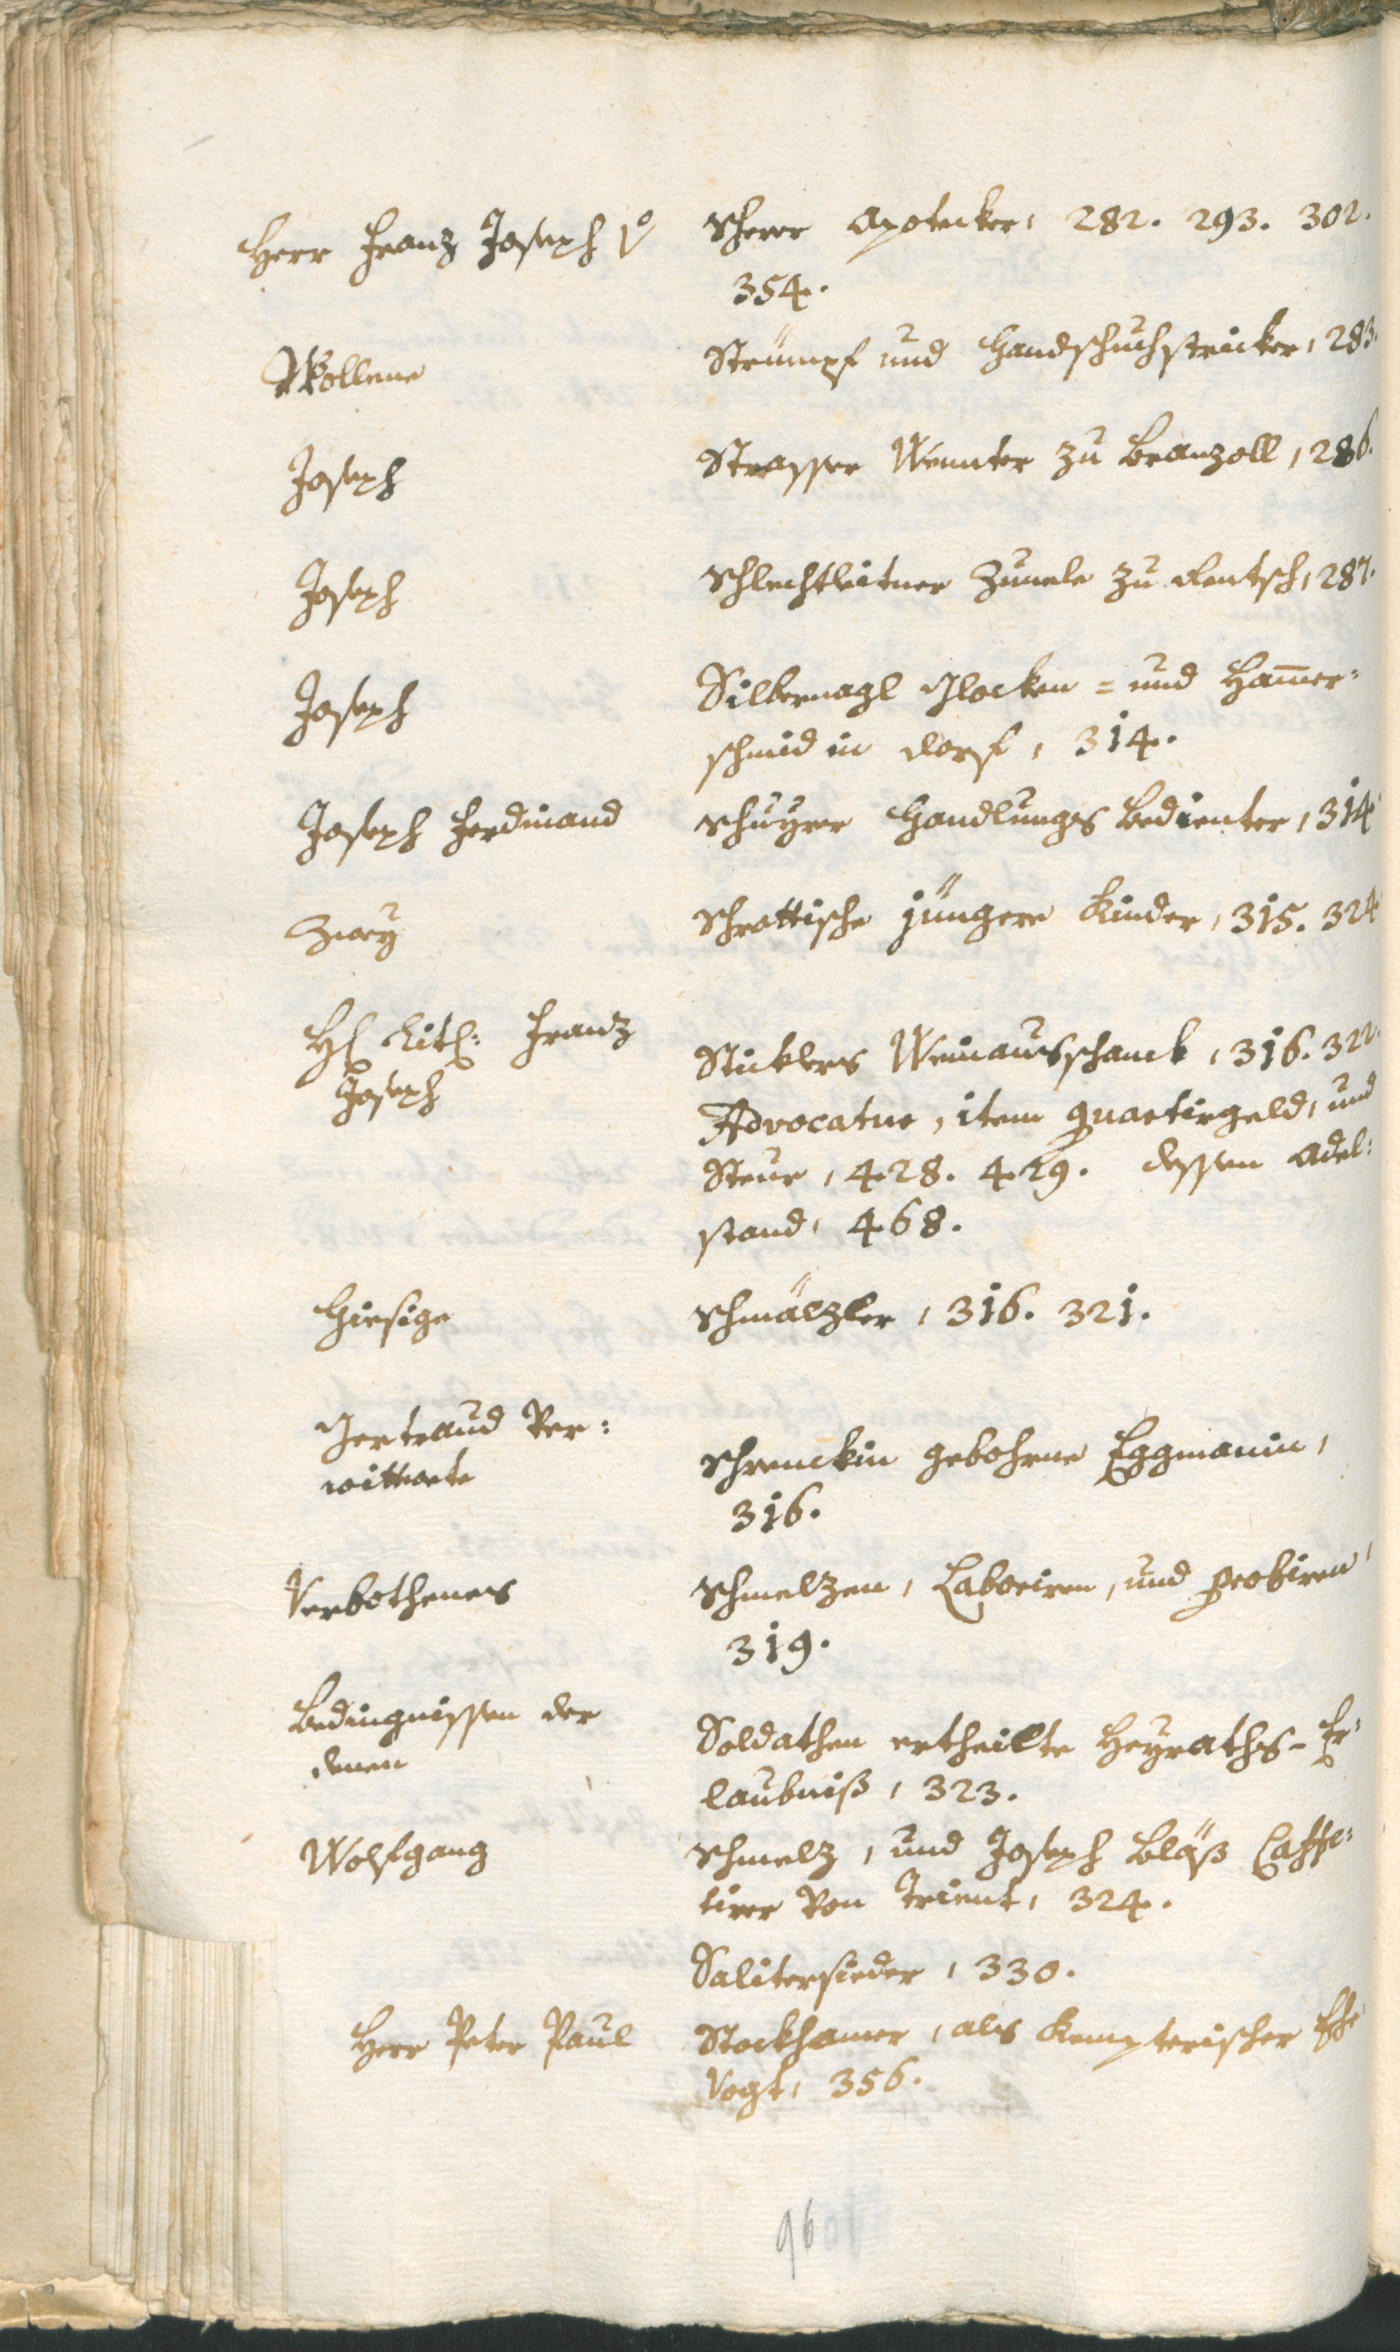 Herr Franz Joseph
Scherer Apotecker, 282. 293. 302.
354.
Wollene
Strümpf und Handschuchstricker, 283.
Joseph
Strasser Wennter zu Branzoll, 286.
Joseph
Schlechtleitner Zunele zu Rentsch, 287.
Joseph
Silbernagl Glocken = und Ham̅er=
schmid in Dorf, 314.
Joseph Ferdinand
Schuyrer Handlungs Bedienter, 314
Zwey
Schrattische jüngere Kinder, 315. 324
Franz
Joseph
Sticklers Weinausschanck, 316. 322.
Advocatur, item Quartirgeld, und
Steur, 428. 429. dessen Adel=
stand, 468.
Hiesige
Schmälzler, 316. 321.
Gertraud Ver=
wittwete
Schrenckin gebohrne Eggmanin,
316.
Verbothenes
Schmelzen, Laboriren, und Probiren,
319.
Bedingnissen der
denen
Soldathen ertheilte Heyraths-Er=
laubniß, 323.
Wolfgang
Schmelz, und Joseph Bläß Caffe=
tirer von Trient, 324.
Salitersieder, 330.
Herr Peter Paul
Stockhamer, als Kempterischer Ehe
Vogt, 356.
96